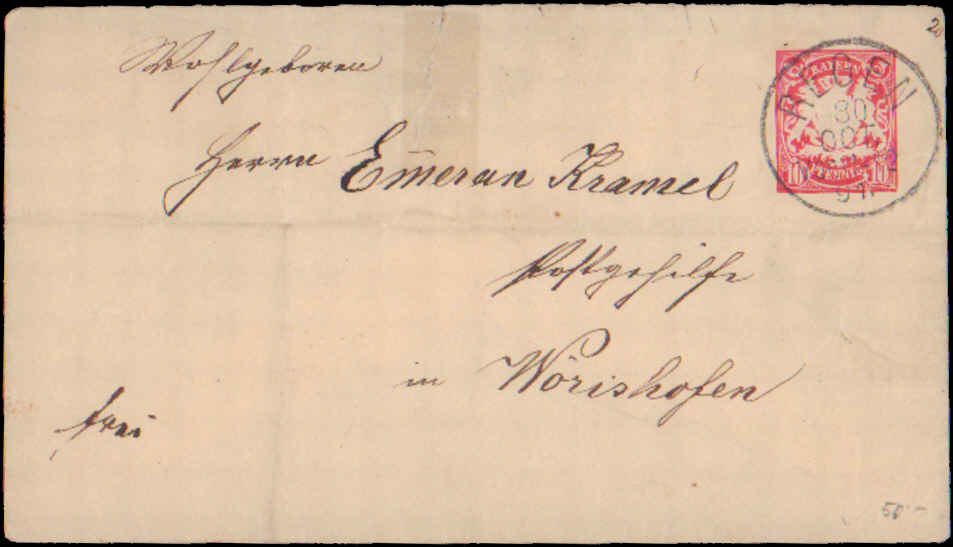 20
Wohlgeboren
REGEN
30
OCT
97
BAYERN
10 PFENNIG 10
Herrn Emeran Kramel
Postgehilfe
in Wörishofen
frei
50 -